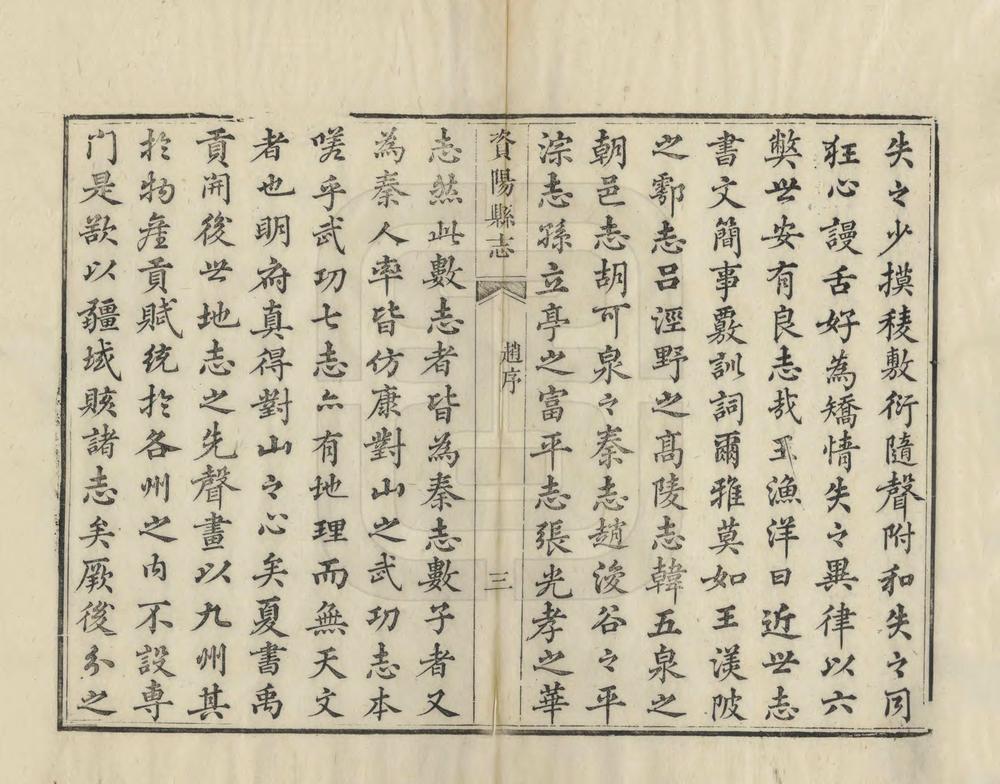 失之少摸稜敷衍隨聲附和失之同
狂心謾舌好為矯情失之異律以六
弊世安有良志哉王漁洋曰近世志
書文簡事覈訓詞爾雅莫如王渼陂
之鄠志吕涇野之高陵志韓五泉之
朝邑志胡可泉之秦志趙浚谷之平
涼志孫立亭之富平志張光孝之華
資陽縣志 趙序 三
志然此數志者皆為秦志數子者又
為秦人率皆仿康對山之武功志本
嗟乎武功七志亦有地理而無天文
者也明府真得對山之心矣夏書禹
貢開後世地志之先聲畫以九州其
於物產貢賦統於各州之内不設専
門是葢以疆域賅諸志矣厥後分之